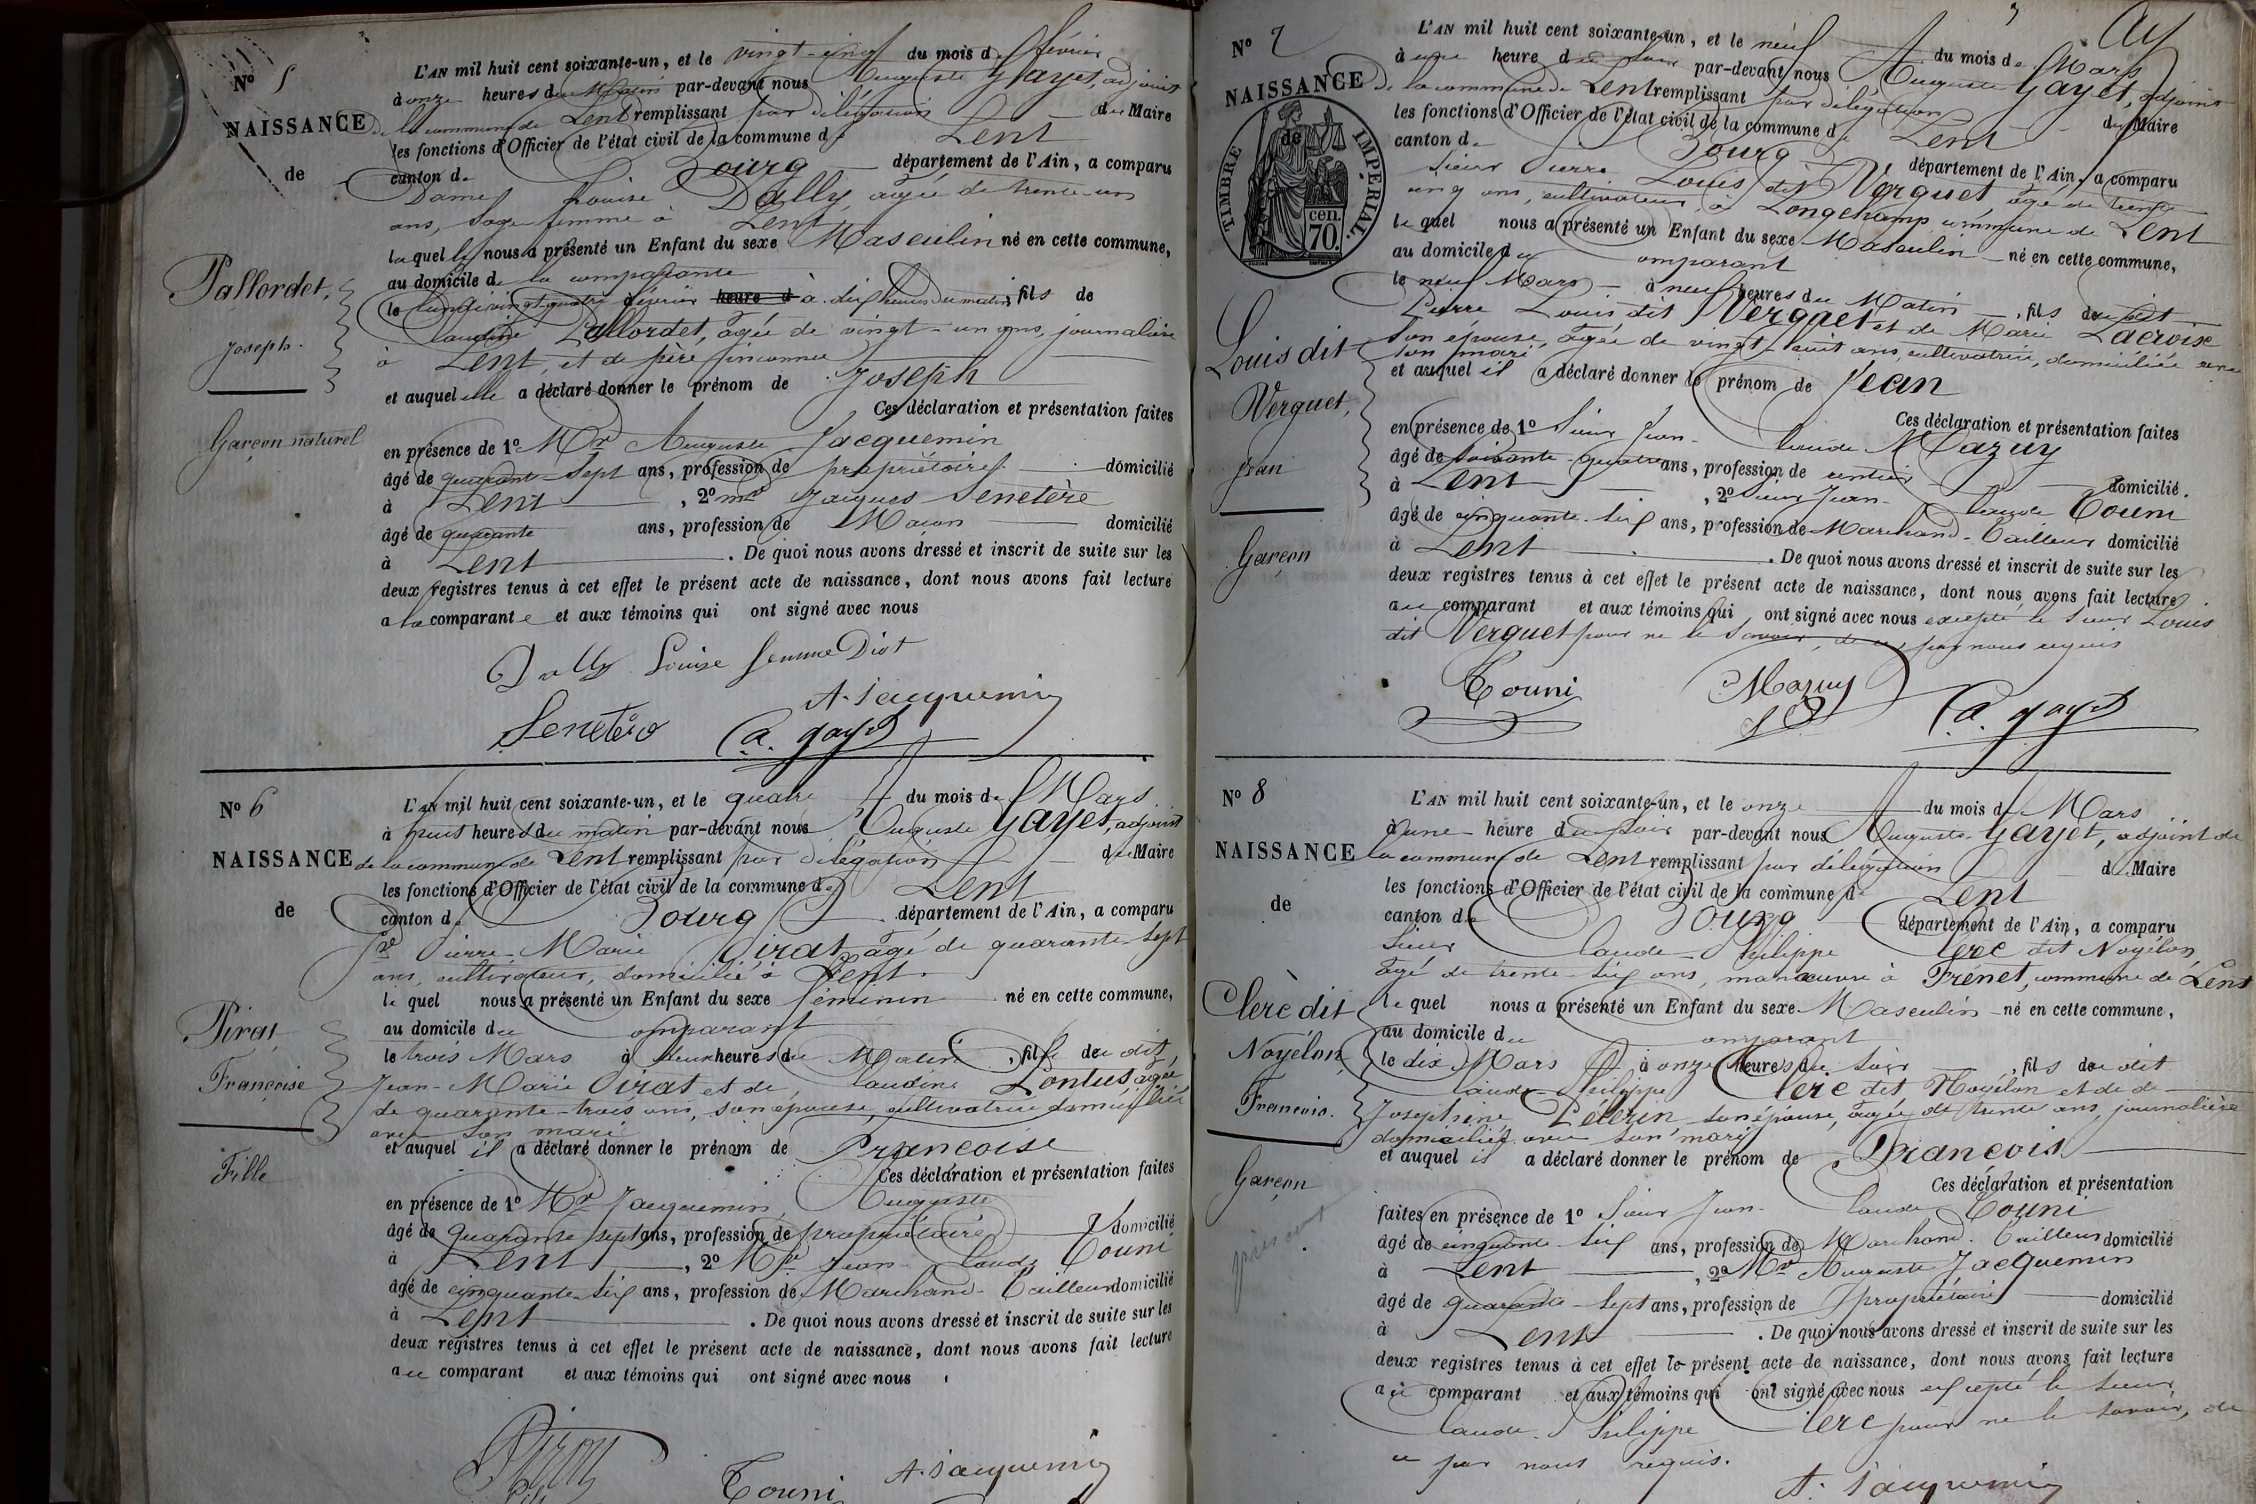 N° 5
NAISSANCE
de
Pallordet,
Joseph.
Garçon naturel
L'AN mil huit cent soixante-un, et le vingt-cinq du mois de février
à onze heures du Matin par-devant nous Auguste Gayet, adjoint
de la commune de Lent remplissant par délégation du Maire
les fonctions d'Officier de l'état civil de la commune de Lent
canton de Bourg département de l'Ain, a comparu
Dame Louise Dally, âgée de trente-un
ans, Sage femme à Lent
laquelle nous a présenté un Enfant du sexe Masculin né en cette commune,
au domicile de la comparante
le lundi vingt-quatre février heure d à dix heures du matin, fils de
Claudine Pallordet, âgée de vingt-un ans, journalière
à Lent, et de père inconnu
et auquel elle a déclaré donner le prénom de Joseph
Ces déclaration et présentation faites
en présence de 1° Mr Auguste Jacquemin
âgé de quarante-sept ans, profession de propriétaire domicilié
à Lent, 2° Mr Jacques Senetère
âgé de quarante ans, profession de Maçon domicilié
à Lent. De quoi nous avons dressé et inscrit de suite sur les
deux registres tenus à cet effet le présent acte de naissance, dont nous avons fait lecture
a la comparante et aux témoins qui ont signé avec nous
Dally Louise femme Diot
A. Jacquemin
Senetère a. gayet
N° 6
NAISSANCE
de
Pirat
Françoise
Fille
L'AN mil huit cent soixante-un, et le quatre du mois de Mars
à huit heures du matin par-devant nous Auguste Gayet, adjoint
de la commune de Lent remplissant par délégation du Maire
les fonctions d'Officier de l'état civil de la commune de Lent
canton de Bourg département de l'Ain, a comparu
Sr Pierre Marie Pirat âgé de quarante-sept
ans, cultivateur, domicilié à Lent.
lequel nous a présenté un Enfant du sexe féminin né en cette commune,
au domicile du comparant
le trois Mars à heures du Matin, fille du dit,
Jean-Marie Pirat et de Claudine Pontus âgée
de quarante-trois ans, son épouse, cultivatrice domiciliée
avec son mari
et auquel il a déclaré donner le prénom de Françoise
Ces déclaration et présentation faites
en présence de 1° Mr Jacquemin Auguste
âgé de quarante sept ans, profession de propriétaire domicilié
à Lent, 2° Mr Jean-Claude Touni
âgé de cinquante-six ans, profession de Marchand-Tailleur domicilié
à Lent. De quoi nous avons dressé et inscrit de suite sur les
deux registres tenus à cet effet le présent acte de naissance, dont nous avons fait lecture
au comparant et aux témoins qui ont signé avec nous
Touni A. Jacquemin
N° 7
NAISSANCE
de
TIMBRE IMPÉRIAL.
70 cen.
Louis dit
Verguet,
Jean
Garçon
L'AN mil huit cent soixante-un, et le neuf du mois de Mars
à une heure du Soir par-devant nous Auguste Gayet, adjoint
de la commune de Lent remplissant par délégation du Maire
les fonctions d'Officier de l'état civil de la commune de Lent
canton de Bourg département de l'Ain, a comparu
Sieur Pierre Louis dit Verguet, âgé de trente
cinq ans, cultivateur, à Longchamp commune de Lent
lequel nous a présenté un Enfant du sexe Masculin né en cette commune,
au domicile du comparant
le neuf Mars à neuf heures du Matin, fils du dit
Pierre Louis dit Verguet et de Marie Lacroix
son épouse, âgée de vingt-huit ans, cultivatrice, domiciliée avec
son mari
et auquel il a déclaré donner le prénom de Jean
Ces déclaration et présentation faites
en présence de 1° Sieur Jean-Claude Mazuy
âgé de soixante-quatre ans, profession de rentier domicilié.
à Lent, 2° Sieur Jean-Claude Touni
âgé de cinquante-six ans, profession de Marchand-Tailleur domicilié
à Lent. De quoi nous avons dressé et inscrit de suite sur les
deux registres tenus à cet effet le présent acte de naissance, dont nous avons fait lecture
au comparant et aux témoins qui ont signé avec nous excepté le Sieur Louis
dit Verguet pour ne le Savoir, de ce par nous requis
Touni Mazuy a. gayet
N° 8
NAISSANCE
de
Clerc dit
Noyélon,
François.
Garçon
L'AN mil huit cent soixante-un, et le onze du mois de Mars
à une heure du soir par-devant nous Auguste Gayet, adjoint de
la commune de Lent remplissant par délégation d Maire
les fonctions d'Officier de l'état civil de la commune de Lent
canton de Bourg département de l'Ain, a comparu
Sieur Claude-Philippe Clerc dit Noyélon,
âgé de trente-six ans, manœuvre à Frénet, commune de Lent
lequel nous a présenté un Enfant du sexe Masculin né en cette commune,
au domicile du comparant
le dix Mars à onze heures du Soir, fils du dit
Claude-Philippe Clerc dit Noyélon et de de
Josephine Pélerin son épouse, âgée de trente ans, journalière
domiciliée avec son mari
et auquel il a déclaré donner le prénom de François
Ces déclaration et présentation
faites en présence de 1° Sieur Jean-Claude Touni
âgé de cinquante-six ans, profession de Marchand-Tailleur domicilié
à Lent, 2° Mr Auguste Jacquemin
âgé de quarante-sept ans, profession de propriétaire domicilié
à Lent. De quoi nous avons dressé et inscrit de suite sur les
deux registres tenus à cet effet le présent acte de naissance, dont nous avons fait lecture
au comparant et aux témoins qui ont signé avec nous excepté le Sieur
Claude-Philippe Clerc pour ne le Savoir, de
ce par nous requis.
A. Jacquemin